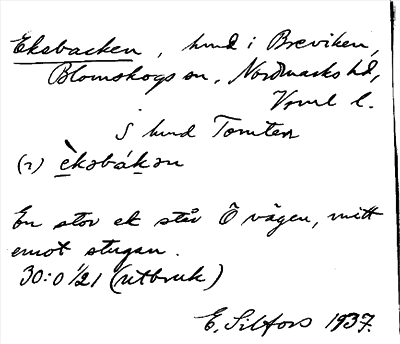 Eksbacken, hmd i Breviken,
Blomskogs sn, Nordmarks hd,
Vrml l.
s hmd Tomten
(r) èksbákən
En stor ek står Ö vägen, mitt
emot stugan.
30:0 1/21 (utbruk)
E. Silfors 1937.